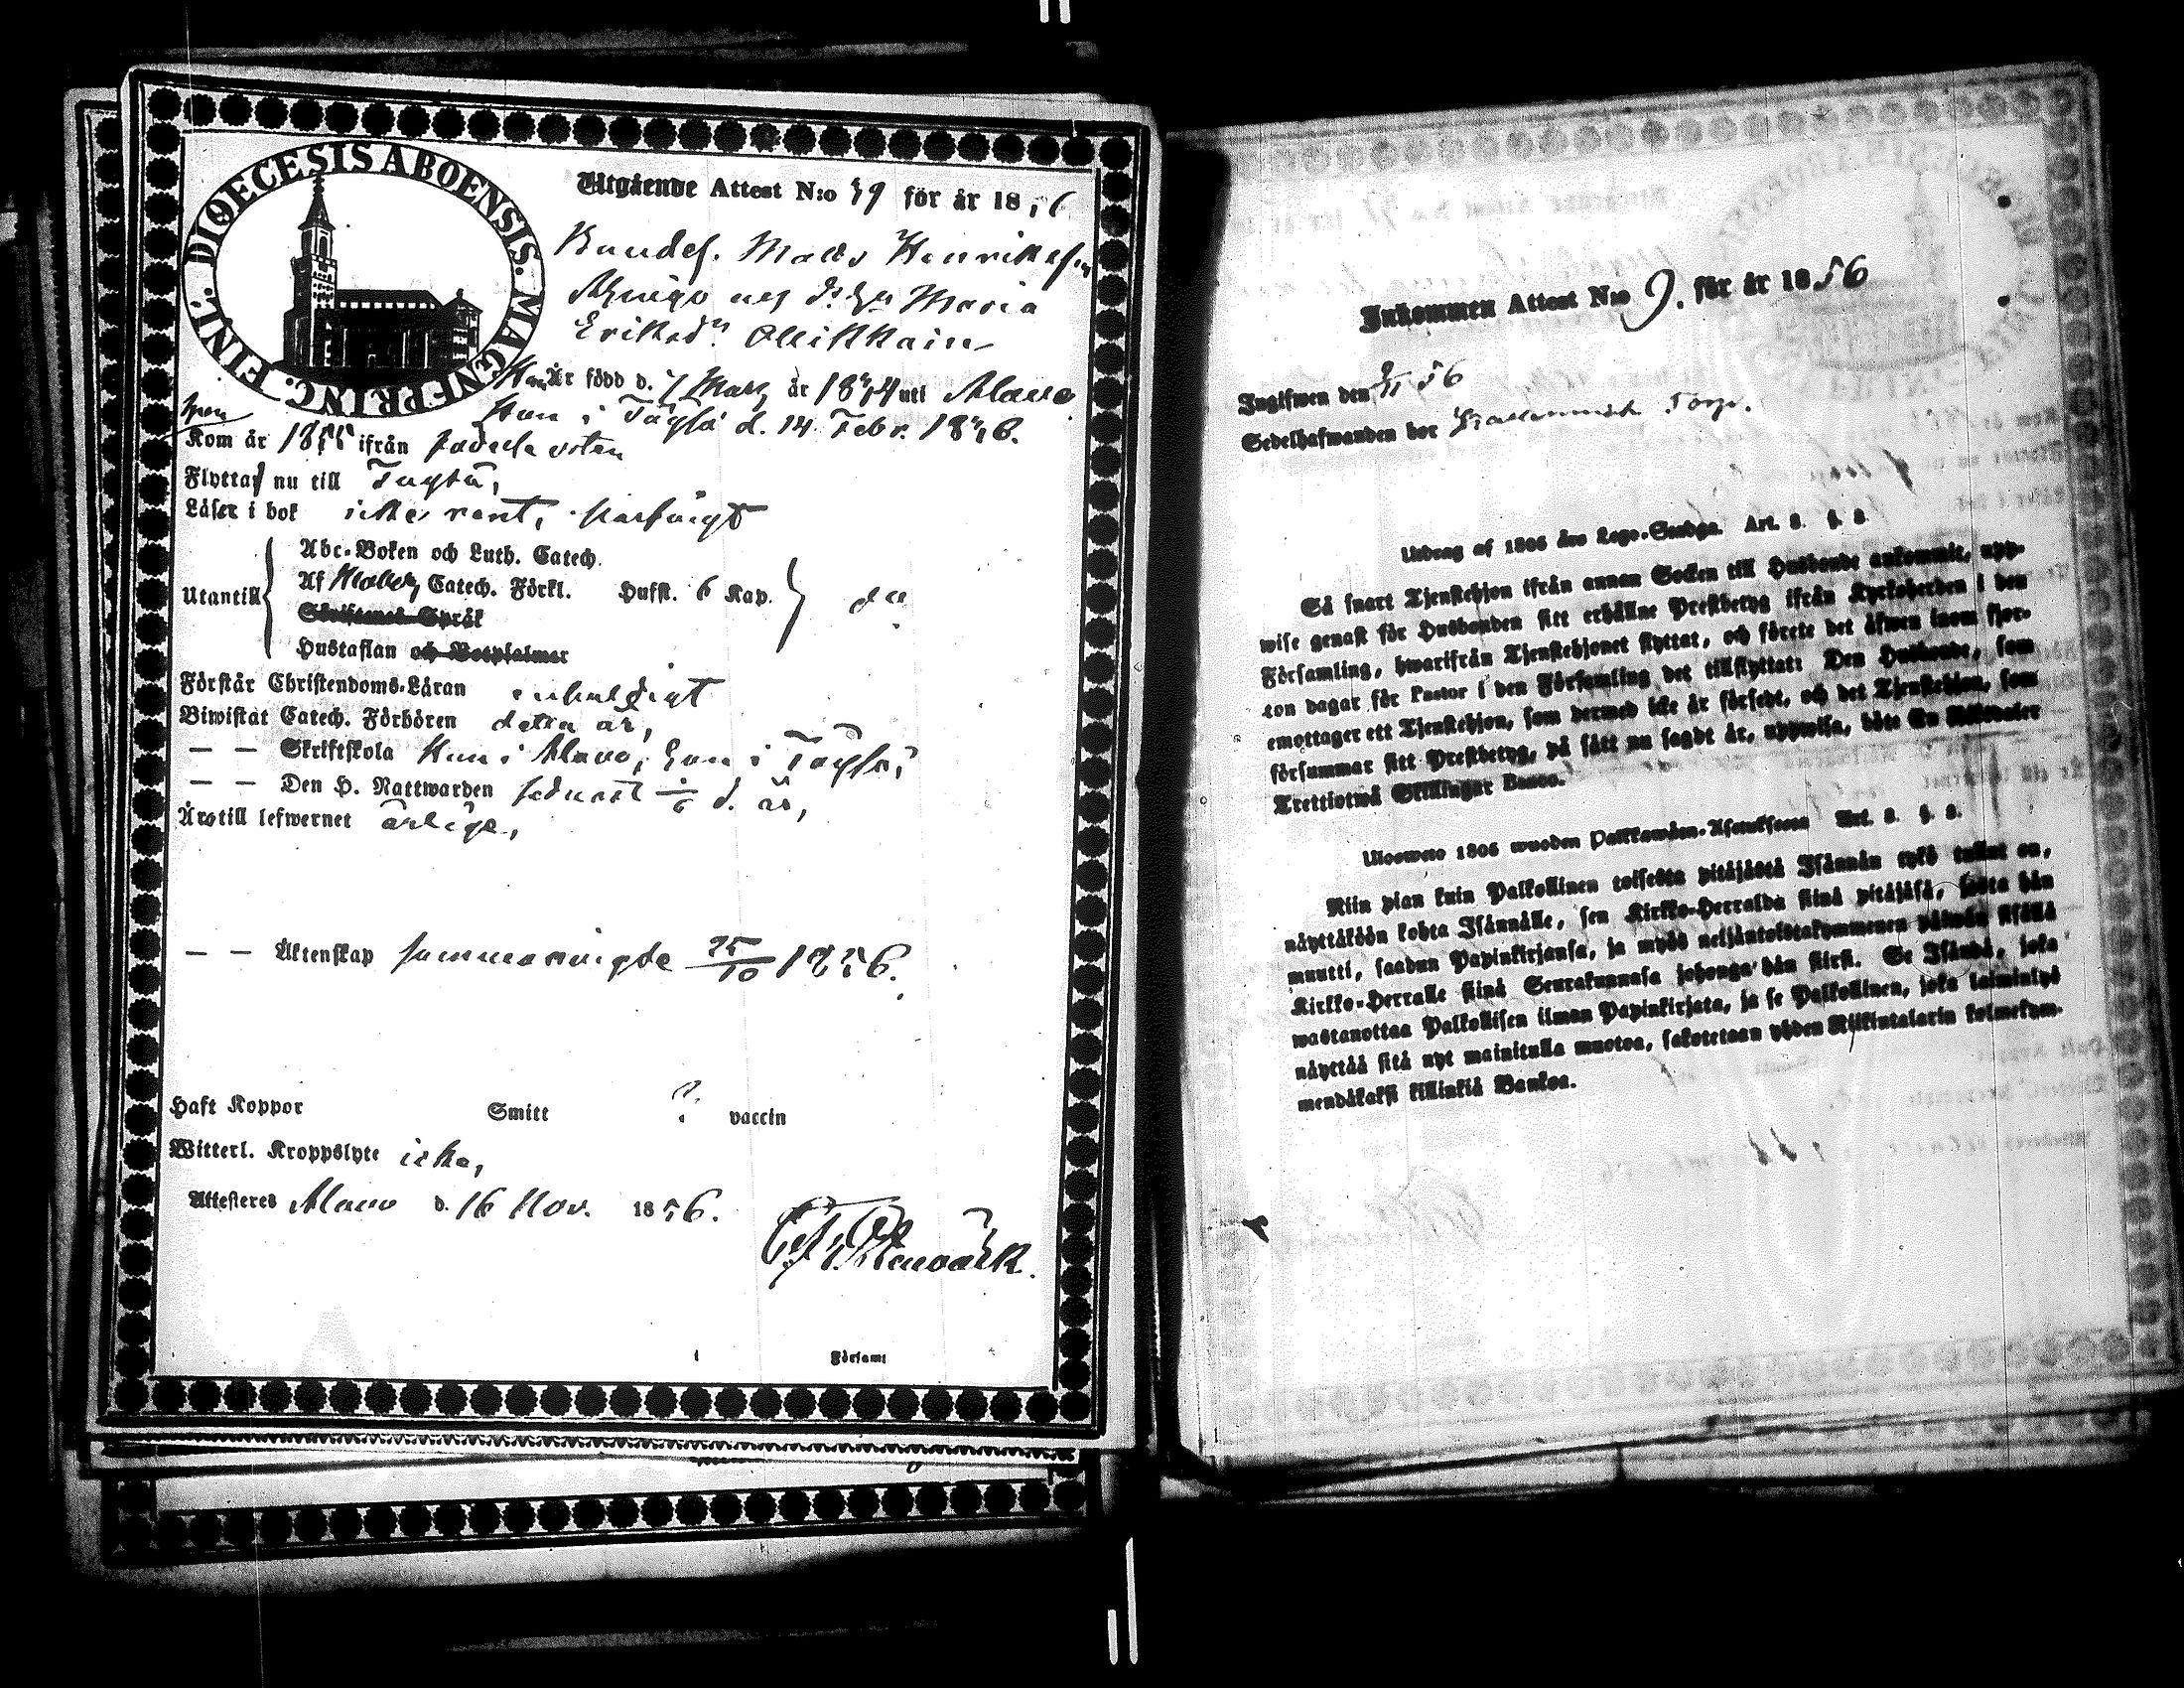 DIOECESIS ABOENSIS. MAGNI PRINC. FINL.
Utgående Attest N:o 59 för år 1856
Bondes. Matts Henriksson
och d. hu Maria
Eriksdr Ollikkain
Han Är född d. 7 Mars år 1834 uti Alavo
hon i Töysä d. 14 Febr. 1836.
hon
Kom år 1855 ifrån födelseorten
Flyttar nu till Töysä,
Läser i bok icke rent,
Utantill
Abc-Boken och Luth. Catech.
Af Catech. Förkl. Hufst. 6 Kap.
Skriftenes Språk
Hustaflan och Botpsalmer
do
Förstår Christendoms-Läran enhaldigt
Biwistat Catech. Förhören detta år,
— — Skriftskola Han i Alavo, hon i Töysä,
— — Den H. Nattwarden sednast d. år,
Är till lefwernet ärlige,
— — Äktenskap sammanvigde 25/10 1856.
Haft Koppor Smitt ? vaccin
Witterl. Kroppslyte icke,
Attesteras Alavo d. 16 Nov. 1856.
Församl
Inkommen Attest N:o 9. för år 1856
Ingifwen den 56
Sedelhafwanden bor Torp.
Utdrag af 1805 års Lego-Stadga. Art. 3. §. 8.
Så snart Tjenstehjon ifrån annan Socken till Husbonde ankommit, upp-
wise genast för Husbonden sitt erhållne Prestbetyg ifrån Kyrkoherden i den
Församling, hwarifrån Tjenstehjonet flyttat, och förete det äfwen inom fjor-
ton dagar för Pastor i den Församling det tillflyttat: Den Husbonde, som
emottager ett Tjenstehjon, som dermed icke är försedt, och det Tjenstehjon, som
försummar sitt Prestbetyg, på sätt nu sagdt är, uppwisa, böte En Riksdaler
Trettiotwå Skillingar Banco.
Ulosweto 1805 wuoden Palkkawäen-Asetuksesta Art. 3. §. 8.
Niin pian kuin Palkollinen toisesta pitäjästä Isännän tykö tullut on,
näyttäköön kohta Isännälle, sen Kirkko-Herralda siinä pitäjäsä, josta hän
muutti, saadun Papinkirjansa, ja myös neljäntoistakymmenen päiwän sisällä
Kirkko-Herralle siinä Seurakunnasa johonga hän siirsi. Se Isändä, joka
wastanottaa Palkollisen ilman Papinkirjata, ja se Palkollinen, joka laiminlyö
näyttää sitä nyt mainitulla muotoa, sakotetaan yhden Riikintalarin kolmekym-
mendäkaksi killinkiä Bankoa.